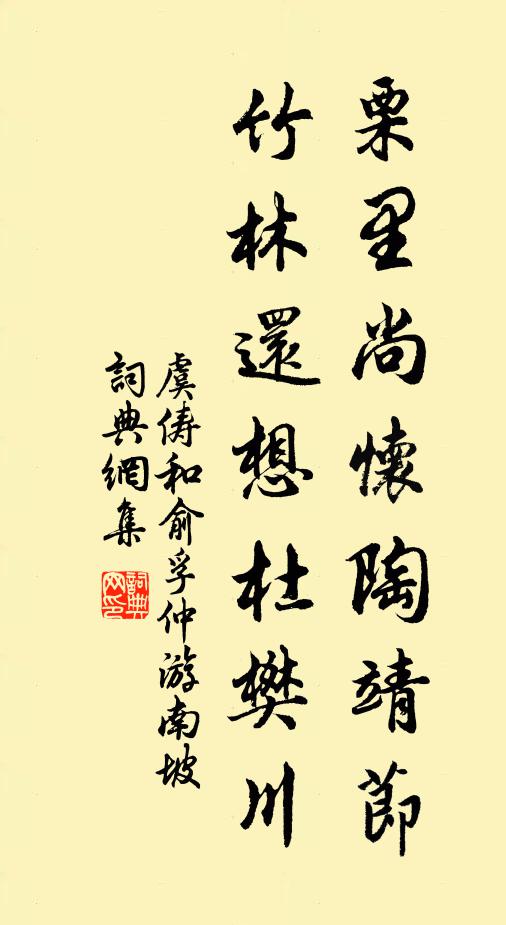 栗里尚懷陶靖節
竹林還想杜樊川
虞儔和俞孚仲游南坡
詞典網集
詞典網印